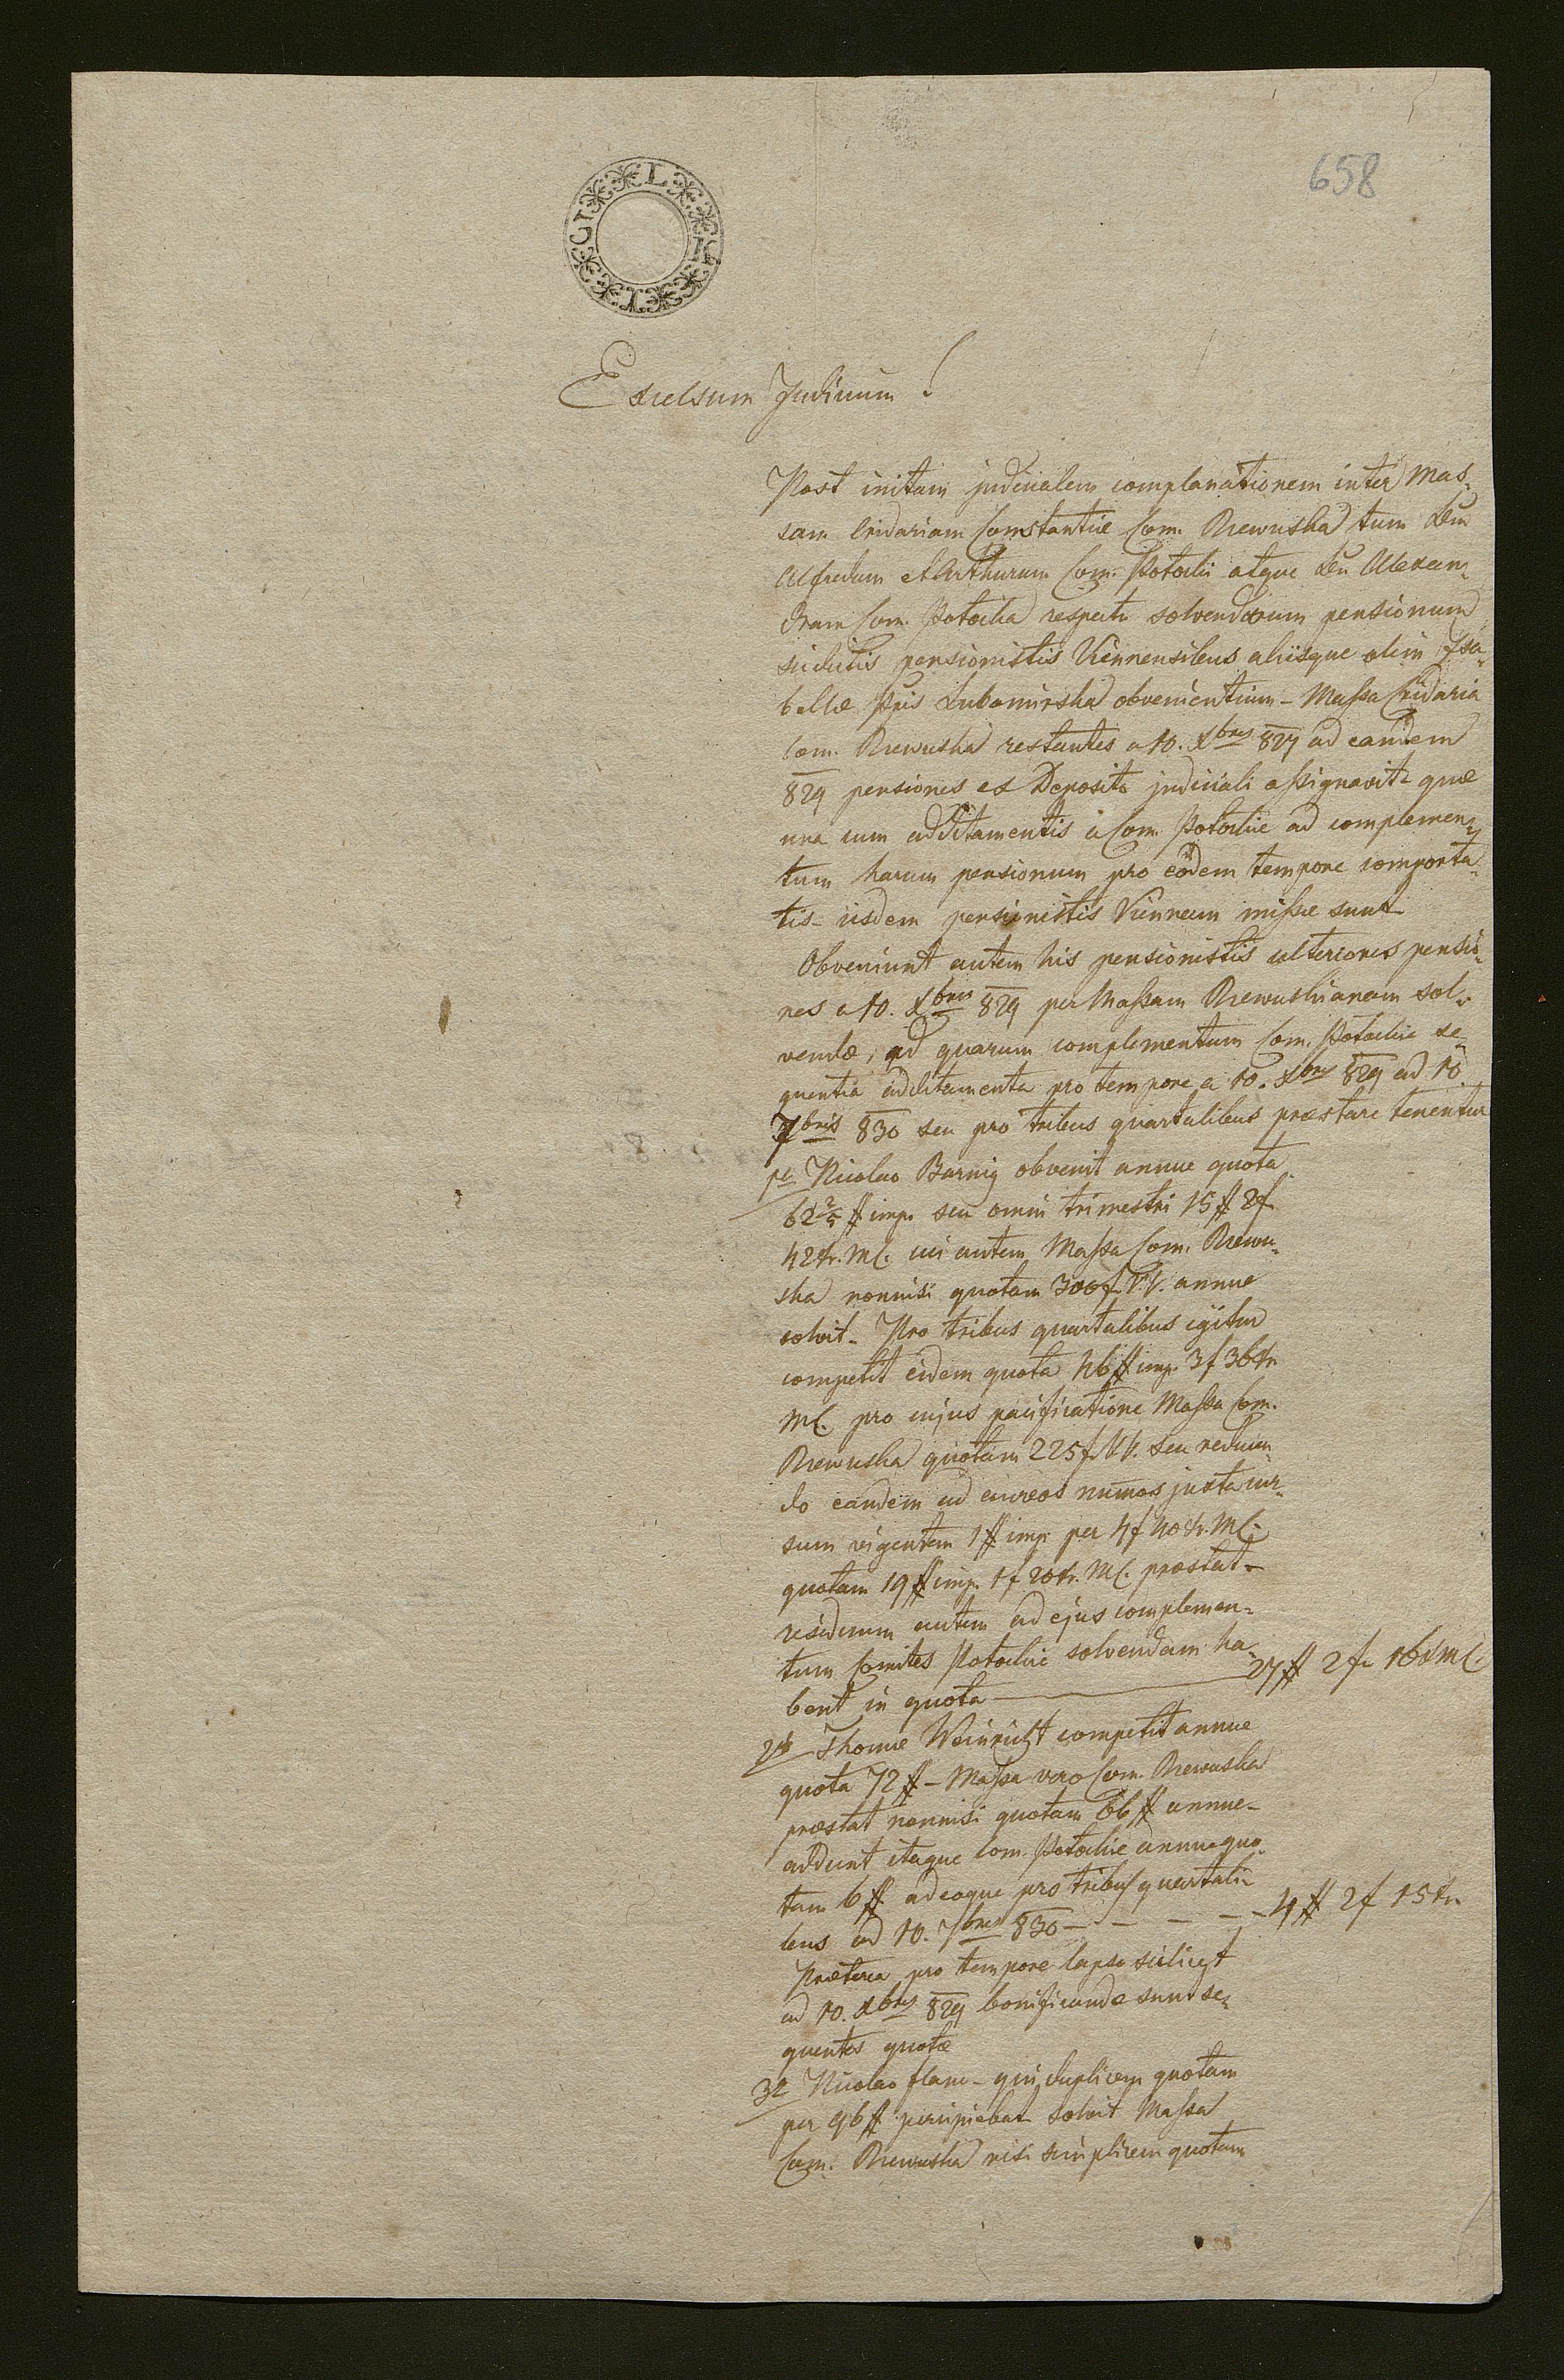 658
L K I G I
Excelsum Judicium!
Post initam judicialem complanationem inter Mas-
sam Cridariam Constantiæ Com. Rzewuska tum Dm̄
Alfredum et Arthurum Com. Potockii atque Dn̄ Alexan-
dram Com. Potocka respectu solvendarum pensionum
sic dictis pensionistis Viennensibus aliisque olim Isa-
bellæ Ppis Lubomirska obvenientium - Massa Cridaria
Com. Rzewuska restantes a 10. Xbris 827 ad eandem
829 pensiones ex Deposito judiciali assignavit - quæ
una cum additamentis a Com. Potockie ad complemen-
tum harum pensionum pro eodem tempore comporta-
tis - iisdem pensionistis Viennam missæ sunt
Obveniunt autem his pensionistis ulteriores pensio-
nes a 10. Xbris 829 per Massam Rzewuskianam sol-
vendæ, ad quarum complementum Com. Potockie se-
quentia additamenta pro tempore a 10. Xbris 829 ad 10.
7bris 830 seu pro tribus quartalibus præstare tenentur
1o Nicolao Barnig obvenit annue quota
62 2/5 # imp. seu omni trimestri 15 # 2 f.
42 Xr. MC. cui autem Massa Com. Rzewu-
ska nonnisi quotam 300 f. VV. annue
solvit - Pro tribus quartalibus igitur
competit eidem quota 46 # imp. 3 f 36 Xr
MC. pro cujus pacificatione Massa Com.
Rzewuska quotam 225 f. VV. seu reducen-
do eandem ad aureos numos juxta cur-
sum vigentem 1 # imp. per 4 f 40 Xr. MC.
quotam 19 # imp. 1 f 20 Xr. MC. præstat -
residuum autem ad ejus complemen-
tum Comites Potockie solvendam ha-
bent in quota 27 # 2 f. 16 Xr MC.
2do Thomæ Weinricht competit annue
quota 72 # - Massa vero Com. Rzewuska
præstat nonnisi quotam 66 # annue -
addunt itaque Com. Potockie annue quo-
tam 6 # adeoque pro tribus quartali-
bus ad 10. 7bris 830 - - - - - 4 # 2 f 15 Xr.
Præterea pro tempore lapso scilicet
ad 10. Xbris 829 bonificandæ sunt se-
quentes quotæ
3o Nicolao - qui duplicem quotam
per 96 # percipiebat solvit Massa
Com. Rzewuska nisi simplicem quotam